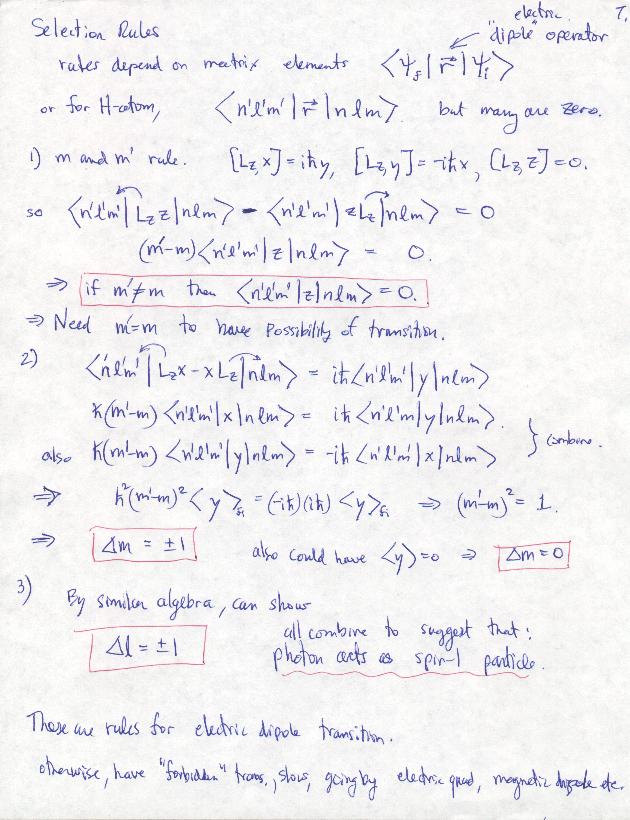 electric 7.
Selection Rules "dipole" operator
rates depend on matrix elements ⟨Ψf| r⃗ |Ψi⟩
or for H-atom, ⟨n'l'm'| r⃗ |nlm⟩. but many are zero.
1) m and m' rule. [Lz,x] = iħy, [Lz,y] = -iħx, [Lz,z] = 0.
so ⟨n'l'm'| Lz z |nlm⟩ - ⟨n'l'm'| z Lz |nlm⟩ = 0
(m'-m)⟨n'l'm'|z|nlm⟩ = 0.
⇒ if m'≠m then ⟨n'l'm'|z|nlm⟩ = 0.
⇒ Need m'=m to have possibility of transition.
2) ⟨n'l'm'| Lz x - x Lz |nlm⟩ = iħ⟨n'l'm'|y|nlm⟩
ħ(m'-m)⟨n'l'm'|x|nlm⟩ = iħ⟨n'l'm|y|nlm⟩.
also ħ(m'-m)⟨n'l'm'|y|nlm⟩ = -iħ⟨n'l'm'|x|nlm⟩ } combine.
⇒ ħ²(m'-m)²⟨y⟩fi = (-iħ)(iħ)⟨y⟩fi ⇒ (m'-m)² = 1.
⇒ Δm = ±1 also could have ⟨y⟩=0 ⇒ Δm=0
3) By similar algebra, can show
Δl = ±1 all combine to suggest that:
photon acts as spin-1 particle.
These are rules for electric dipole transition.
otherwise, have "forbidden" trans., slow, going by electric quad, magnetic dipole etc.